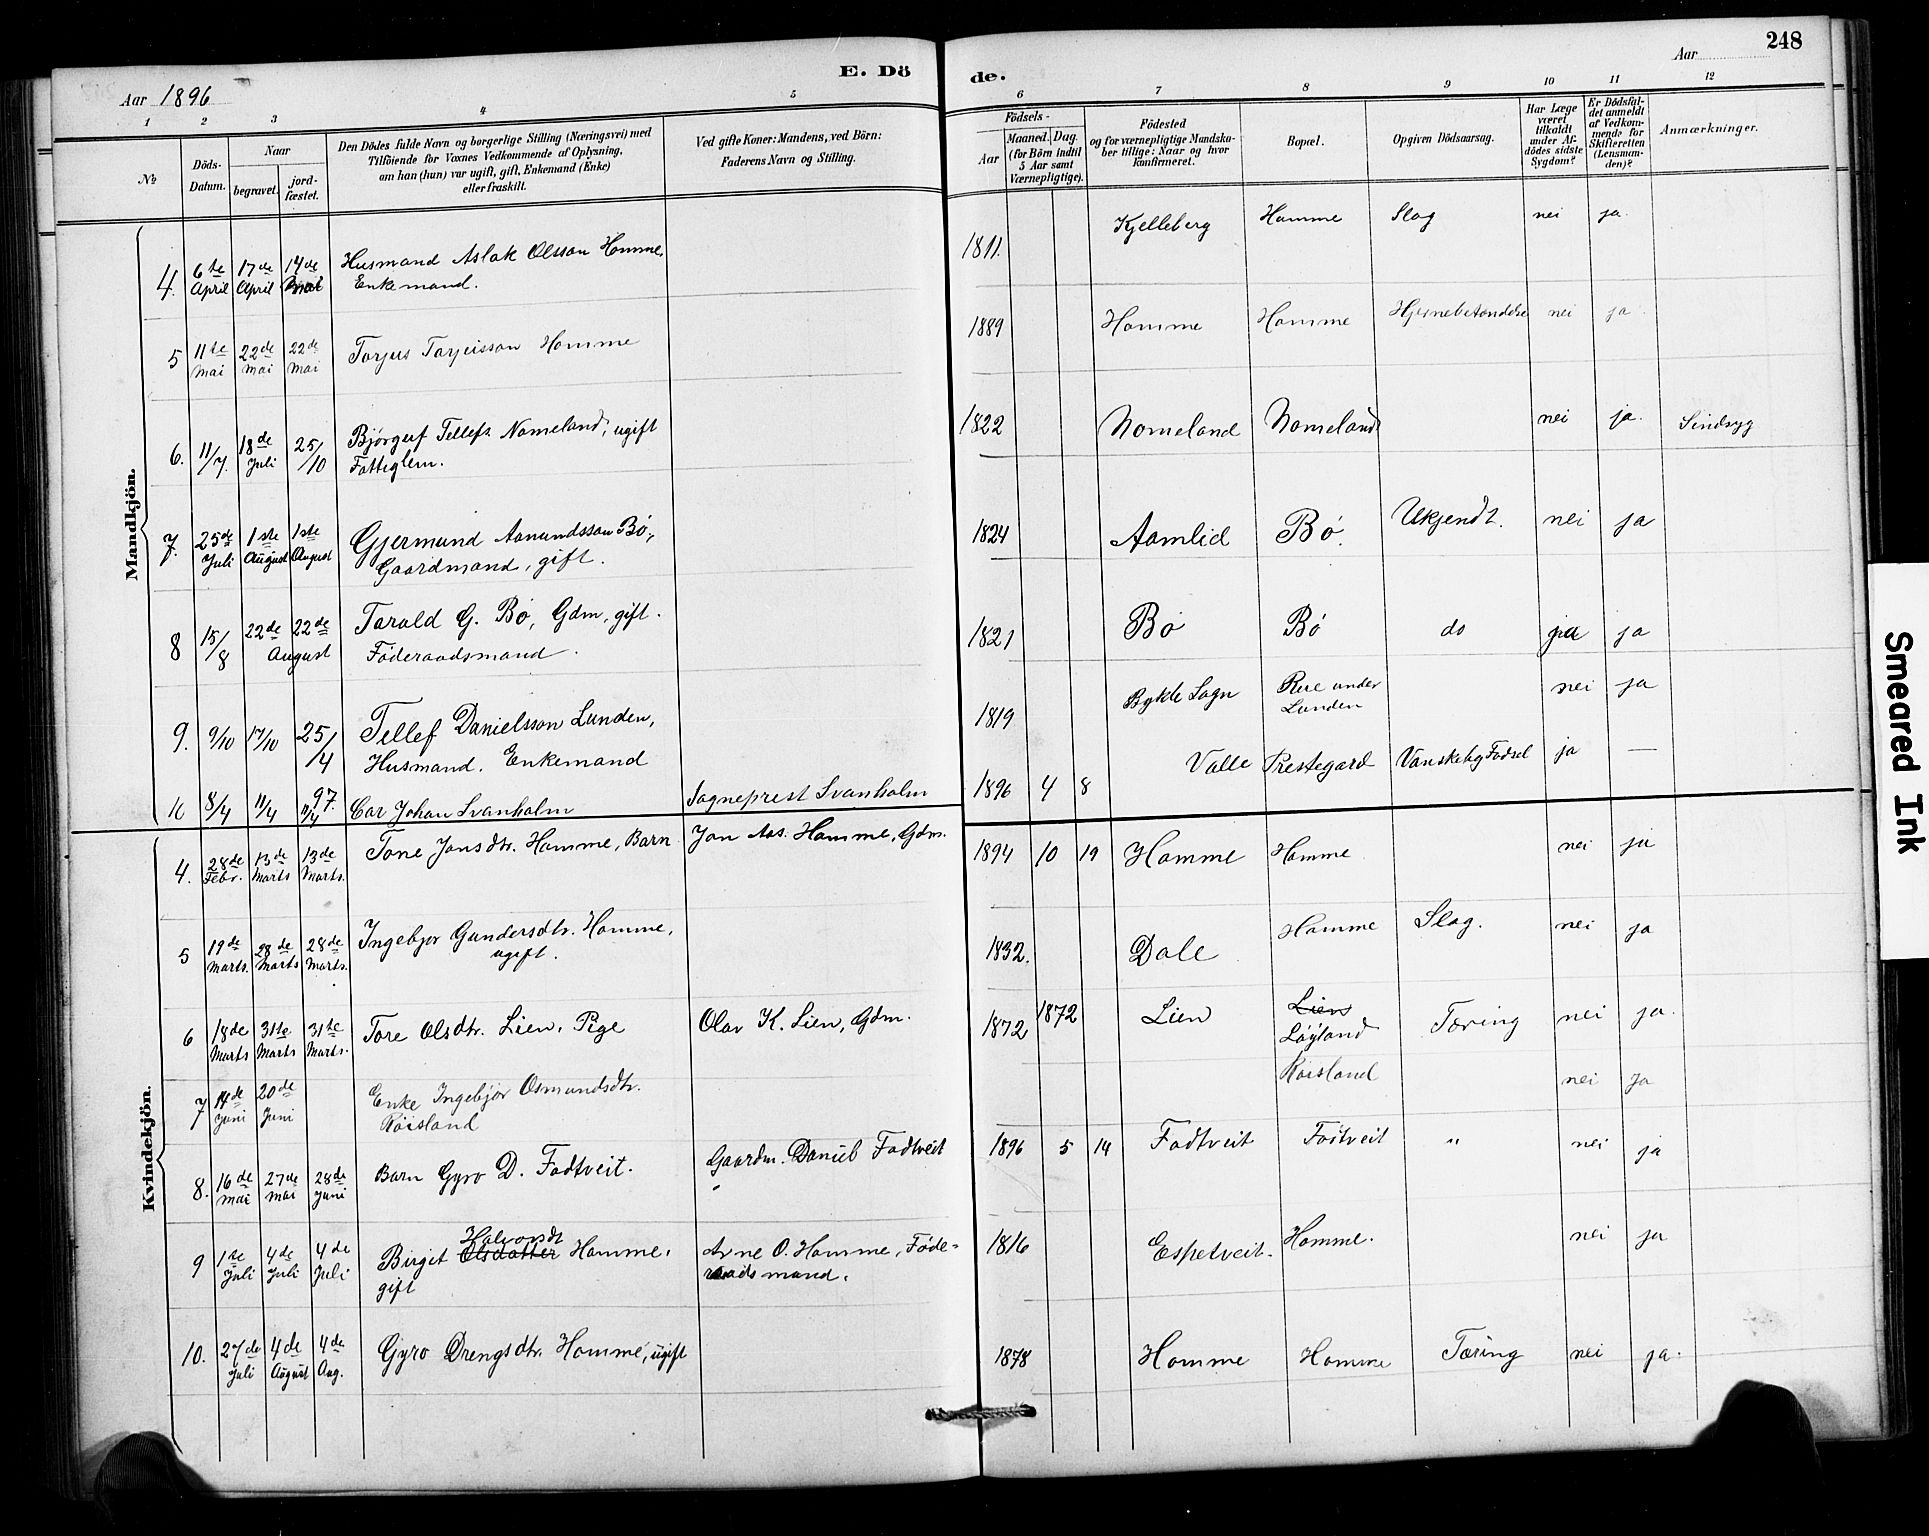 248
E. Døde.
Aar 1896
Aar
1 2 3 4 5 6 7 8 9 10 11 12
№
Döds-Datum.
Naar
begravet.
jord-fæstet.
Den Dödes fulde Navn og borgerlige Stilling (Næringsvei) med
Tilföiende for Voxnes Vedkommende af Oplysning,
om han (hun) var ugift, gift, Enkemand (Enke)
eller fraskilt.
Ved gifte Koner: Mandens, ved Börn:
Faderens Navn og Stilling.
Födsels-
Aar
Maaned. Dag.
(for Börn indtil
5 Aar samt
Værnepligtige).
Födested
og for værnepligtige Mandska-
ber tillige: Naar og hvor
konfirmeret.
Bopæl.
Opgiven Dödsaarsag.
Har Læge
været
tilkaldt
under Af-
dödes sidste
Sygdom?
Er Dödsfal-
det anmeldt
af Vedkom-
mende for
Skifteretten
(Lensman-
den)?
Anmærkninger.
Mandkjön.
4. 6te April 17de April 14de Husmand Aslak Olsson Homme, Enkemand. 1811. Kjelleberg Homme Slag nei ja.
5 11te Mai 22de Mai 22de Mai Torjus Torjeisson Homme 1889 Homme Homme Hjernebetændelse nei ja.
6. 11/7. 18de Juli 25/10 Bjørguf Tellefs. Nomeland, ugift Fatteglem. 1822 Nomeland Nomeland nei ja. Sindsyg
7. 25de Juli 1ste August 1ste August Gjermund Aanundsson Bö, Gaardmand, gift. 1824 Aamlid Bö. Ukjendt. nei ja
8 15/8 22de 22de August Torald G. Bö, Gdm, gift. Föderaadsmand. 1821 Bö Bö do ja ja
9. 9/10 17/10 25/4 97. Tellef Danielsson Lunden, Husmand. Enkemand 1819 Bykle Sogn Rue under Lunden nei ja
10 8/4 11/4 11/4 Car Johan Svanholm Sogneprest Svanholm 1896 4 8 Valle Prestegard Vanskelig Fødsel ja —
Kvindekjön.
4. 28de Febr. 13de Marts 13de Marts. Tone Jonsdtr. Homme, Barn Jon Aas. Homme, Gdm. 1894 10 19 Homme Homme nei ja
5 19de Marts. 28de Marts 28de Marts. Ingebjor Gundersdtr. Homme, ugift. 1832. Dale Homme Slag. nei ja
6 18de Marts 31te Marts 31te Marts. Tore Olsdtr. Lien, Pige Olav K. Lien, Gdm. 1872 1872 Lien Lien Löyland Tæring nei ja.
7 14de Juni 20de Juni Enke Ingebjor Osmundsdtr. Röisland Röisland nei Ja
8. 16de Mai 27de Mai 28de Juni Barn Gyro D. Fodtveit. Gaardm. Daniel Fodtveit 1896 5 14 Fodtveit Fodtveit " nei ja
9 1te Juli 4de Juli 4de Juli Birgit Olsdatter Halvorsdt Homme, gift Arne O. Homme, Føde-raadsmand. 1816 Espetveit. Homme. nei ja
10. 27de Juli 4de August 4de Aug. Gyro Drengsdtr. Homme, ugift 1878 Homme Homme Tæring nei ja.
Smeared Ink